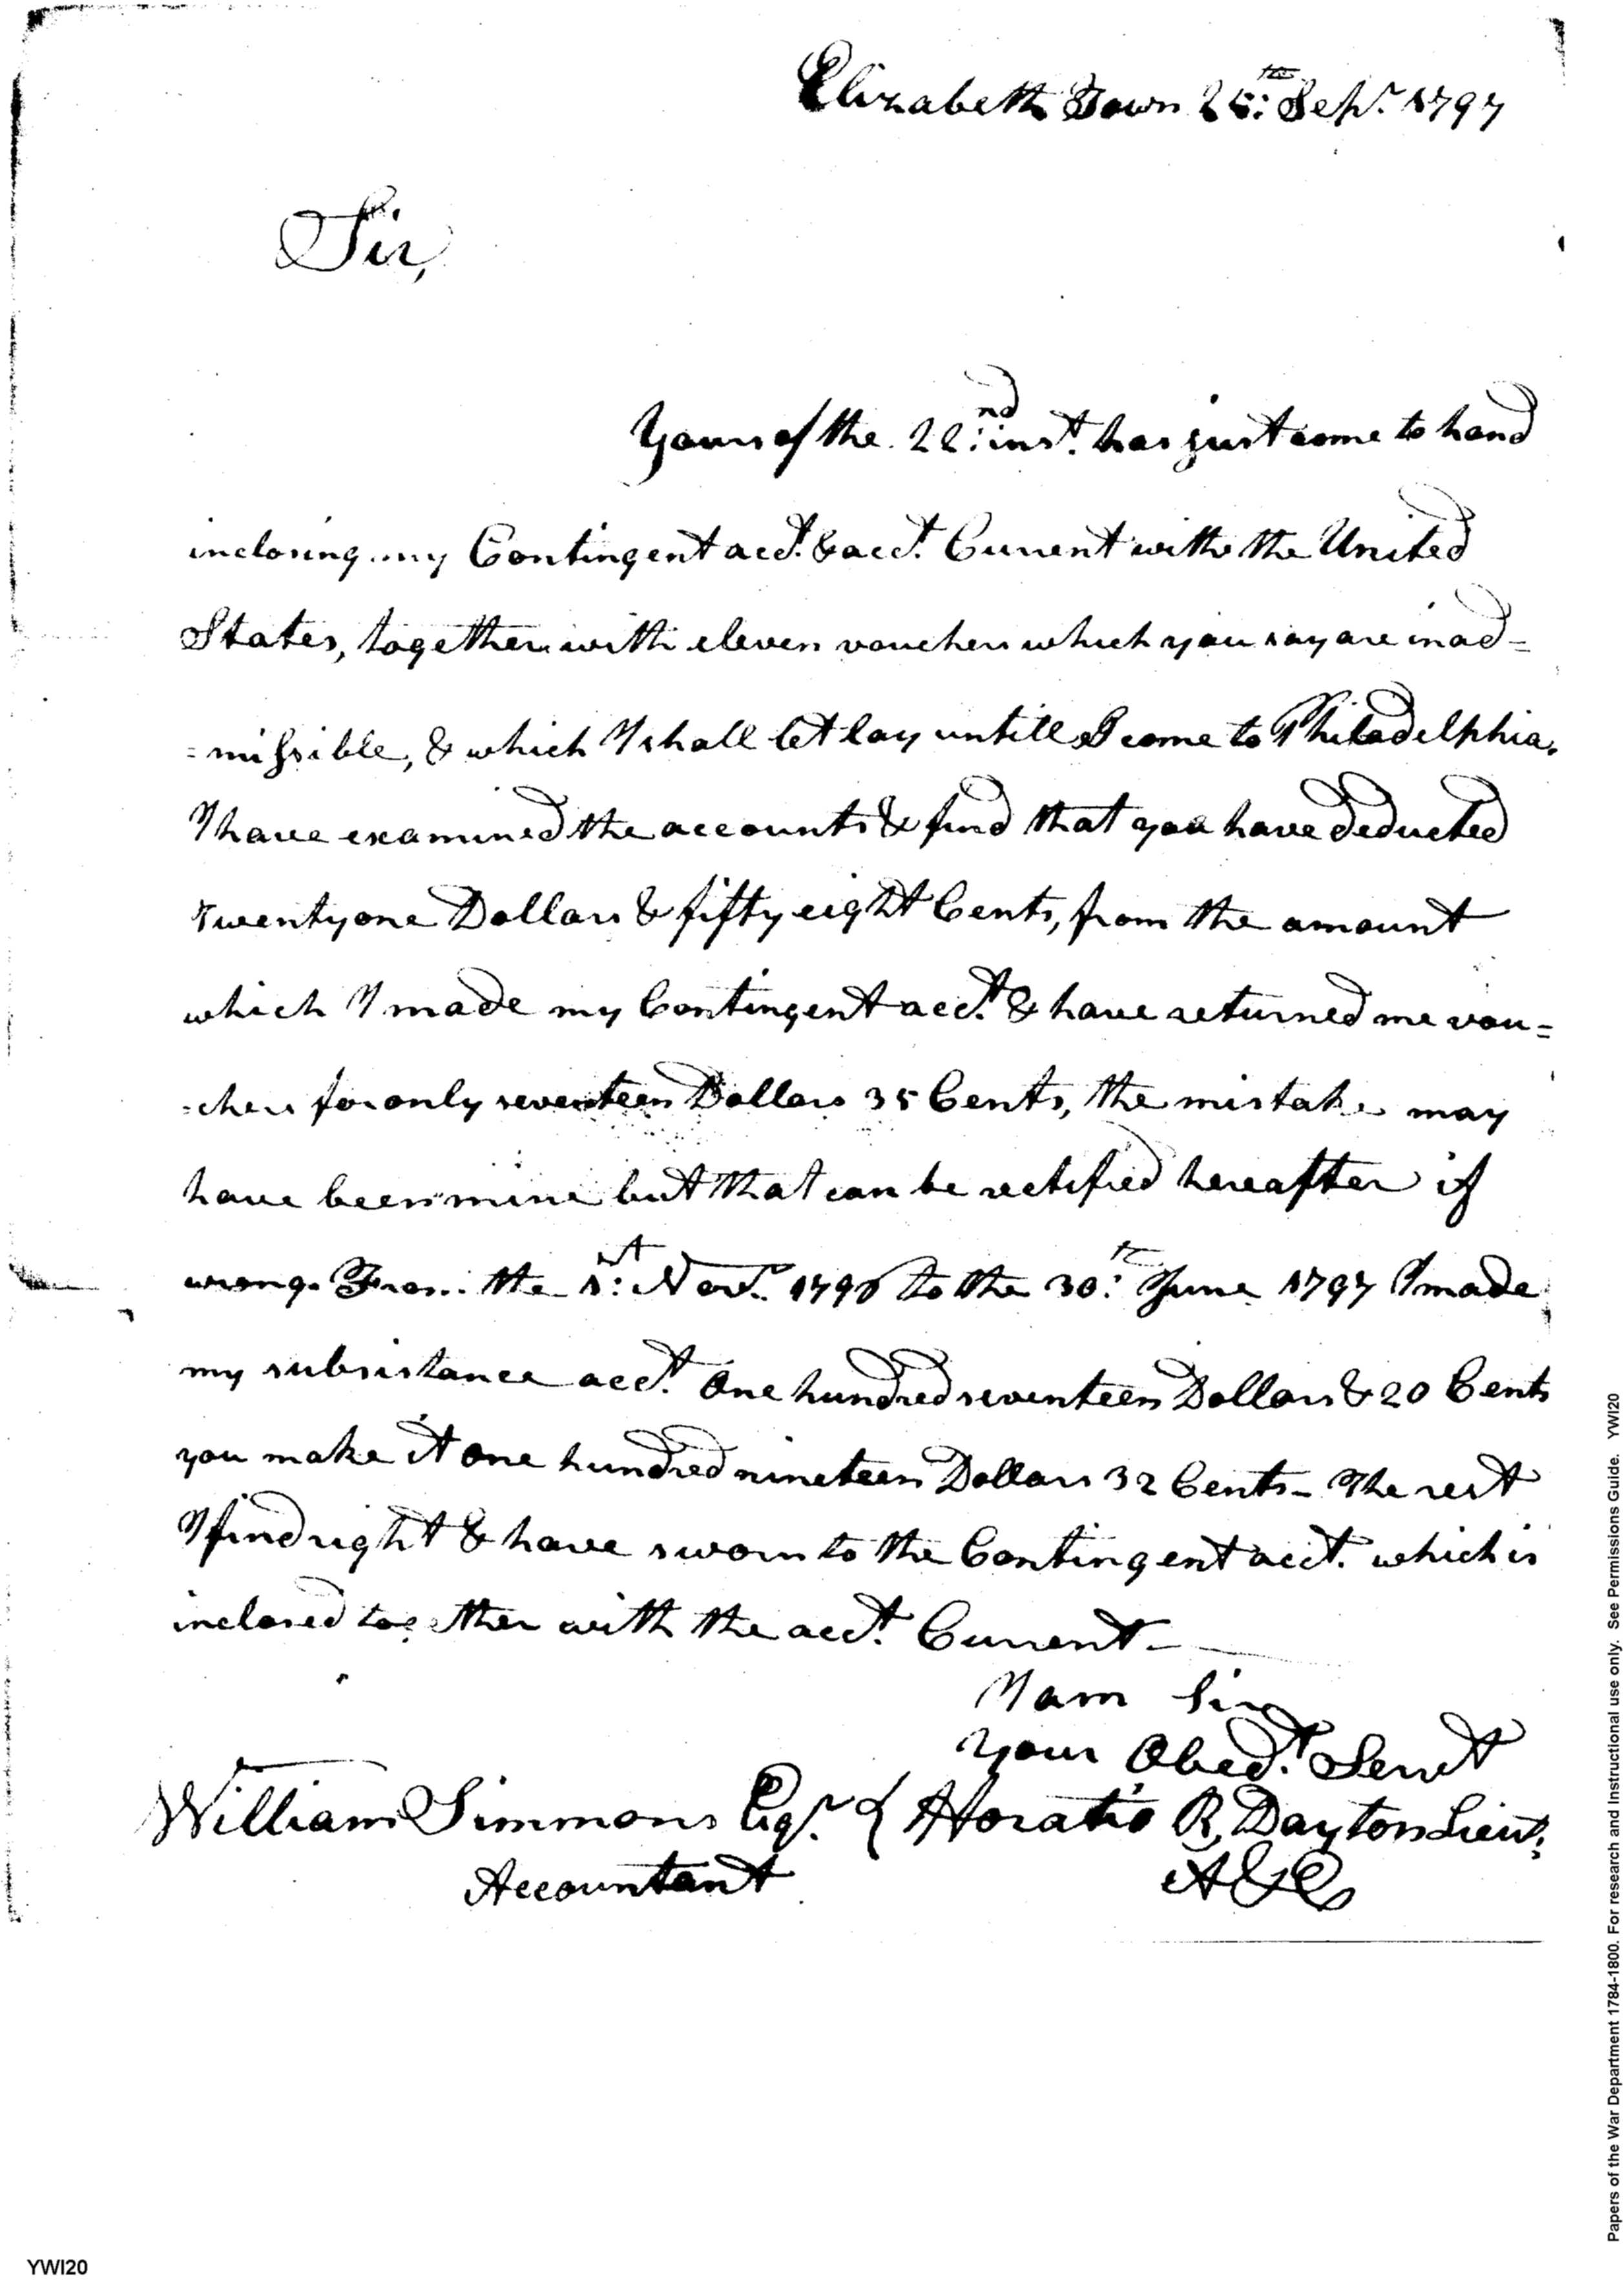 Elizabeth Town 25th Sepr. 1797
Sir,
Yours of the 22nd inst. has just come to hand
inclosing my Contingent acct. & acct. Current with the United
States, together with eleven vouchers which you say are inad=
=missible, & which I shall let lay untill I come to Philadelphia.
I have examined the accounts & find that you have deducted
twenty one Dollars & fifty eight Cents, from the amount
which I made my Contingent acct. & have returned me vou=
=chers for only seventeen Dollars 35 Cents, the mistake may
have been mine but that can be rectified hereafter if
wrong. From the 1st Novr. 1796 to the 30th June 1797 I made
my subsistance acct. One hundred seventeen Dollars & 20 Cents
you make it One hundred nineteen Dollars 32 Cents – The rest
I find right & have sworn to the Contingent acct. which is
inclosed together with the acct. Current –
I am Sir
Your Obedt. Servt
William Simmons Esqr. { Horatio R, Dayton Lieut.
Accountant A&E
YWI20
Papers of the War Department 1784-1800. For research and Instructional use only. See Permissions Guide. YWI20